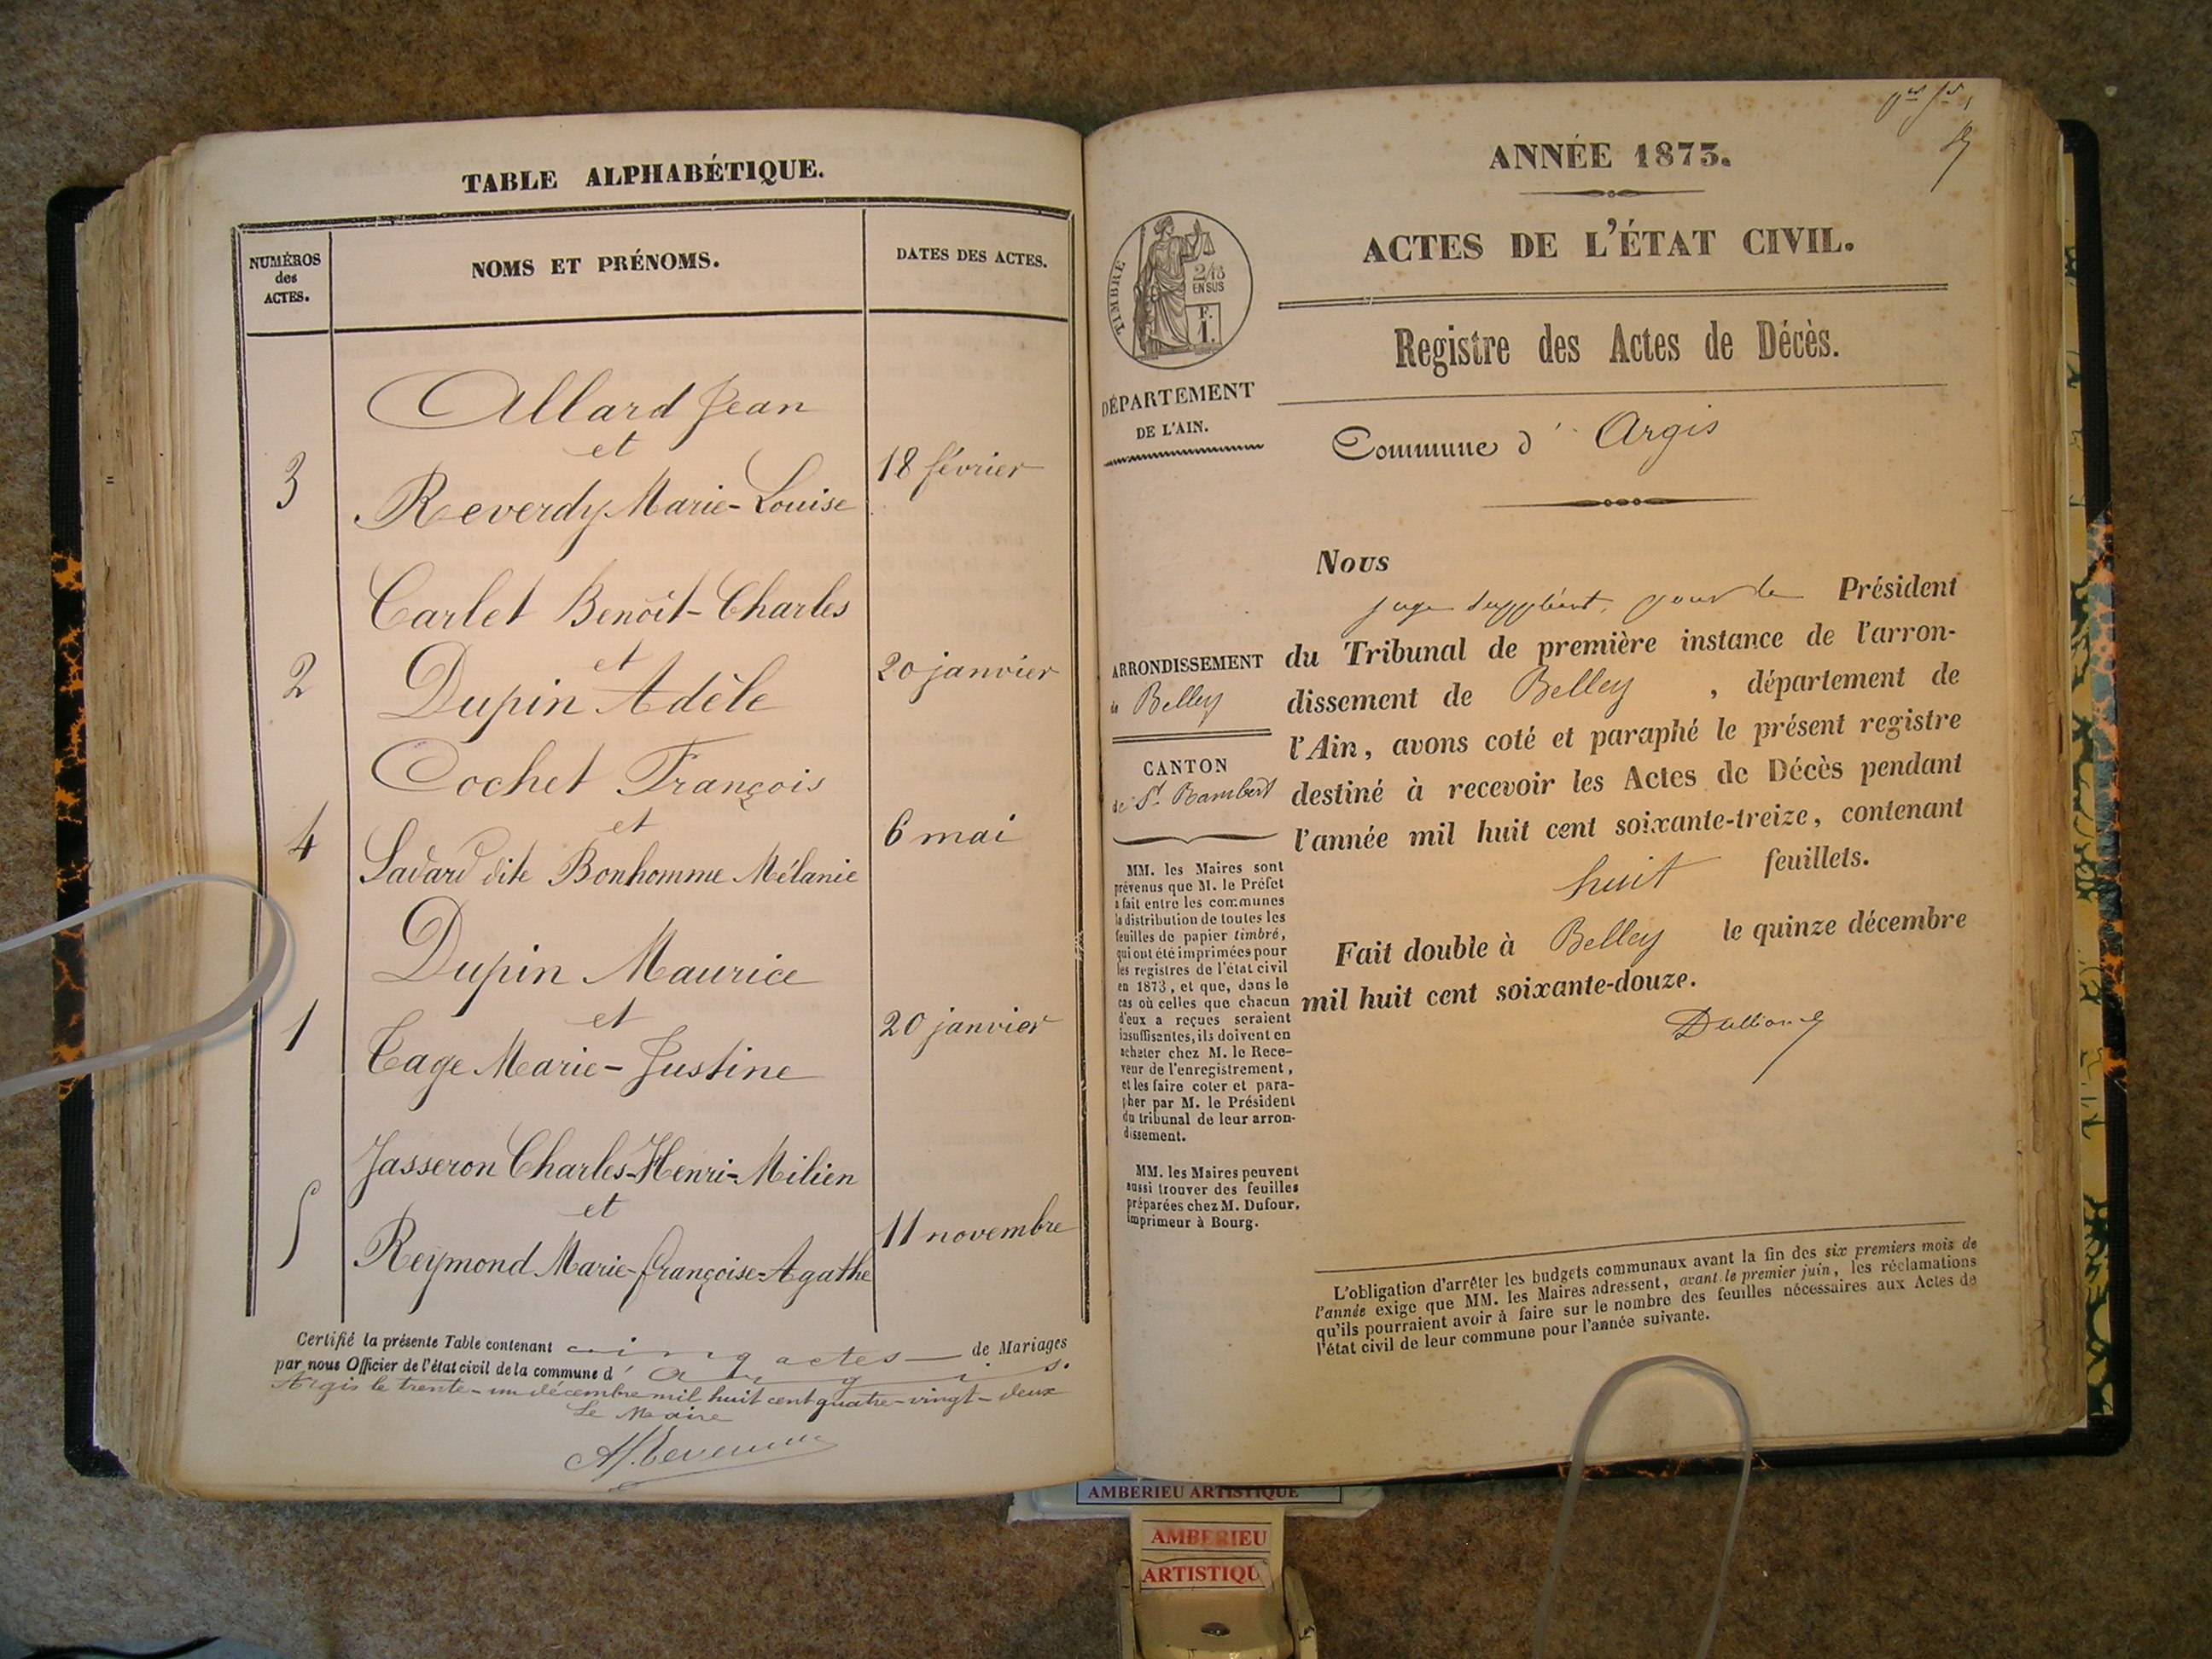 TABLE ALPHABÉTIQUE.
NUMÉROS
des
ACTES.
NOMS ET PRÉNOMS.
DATES DES ACTES.
Allard Jean
et
3
18 février
Reverdy Marie-Louise
Carlet Benoît-Charles
et
2
20 janvier
Dupin Adèle
Cochet François
et
4
6 mai
Savard dite Bonhomme Mélanie
Dupin Maurice
et
1
20 janvier
Tage Marie-Justine
Jasseron Charles-Henri-Milien
et
5
11 novembre
Reymond Marie-françoise-Agathe
Certifié la présente Table contenant cinq actes de Mariages
par nous Officier de l'état civil de la commune d'Argis.
Argis le trente-un décembre mil huit cent quatre-vingt-deux
Le Maire
ANNÉE 1873.
ACTES DE L'ÉTAT CIVIL.
TIMBRE
2/10
EN SUS
F.
1.
Registre des Actes de Décès.
DÉPARTEMENT
DE L'AIN.
Commune d' Argis
Nous
juge suppléant, pour le Président
du Tribunal de première instance de l'arron-
dissement de Belley, département de
l'Ain, avons coté et paraphé le présent registre
destiné à recevoir les Actes de Décès pendant
l'année mil huit cent soixante-treize, contenant
huit feuillets.
Fait double à Belley le quinze décembre
mil huit cent soixante-douze.
ARRONDISSEMENT
de Belley
CANTON
de St. Rambert
MM. les Maires sont
prévenus que M. le Préfet
a fait entre les communes
la distribution de toutes les
feuilles de papier timbré,
qui ont été imprimées pour
les registres de l'état civil
en 1873, et que, dans le
cas où celles que chacun
d'eux a reçues seraient
insuffisantes, ils doivent en
acheter chez M. le Rece-
veur de l'enregistrement,
et les faire coter et para-
pher par M. le Président
du tribunal de leur arron-
dissement.
MM. les Maires peuvent
aussi trouver des feuilles
préparées chez M. Dufour,
imprimeur à Bourg.
L'obligation d'arrêter les budgets communaux avant la fin des six premiers mois de
l'année exige que MM. les Maires adressent, avant le premier juin, les réclamations
qu'ils pourraient avoir à faire sur le nombre des feuilles nécessaires aux Actes de
l'état civil de leur commune pour l'année suivante.
AMBERIEU ARTISTIQUE
AMBERIEU
ARTISTIQU